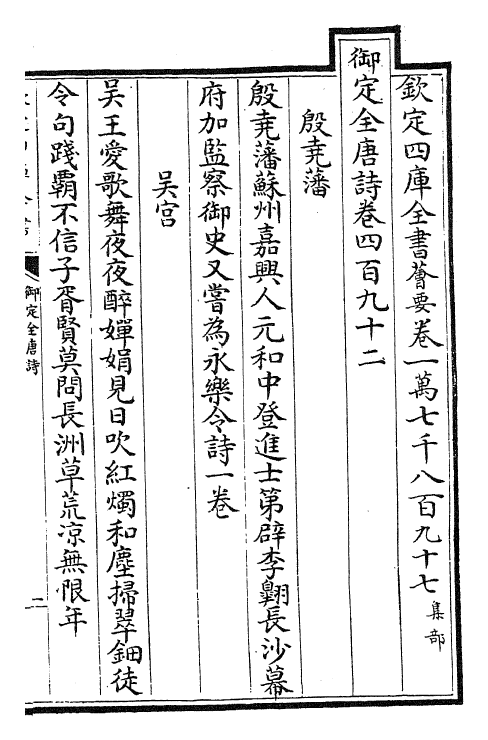 欽定四庫全書薈要卷一萬七千八百九十七 集部
御定全唐詩卷四百九十二
殷堯藩
殷堯藩蘇州嘉興人元和中登進士第辟李翺長沙幕
府加監察御史又嘗為永樂令詩一卷
吳宫
吳王愛歌舞夜夜醉嬋娟見日吹紅燭和塵掃翠鈿徒
令句踐霸不信子胥賢莫問長洲草荒凉無限年
御定全唐詩